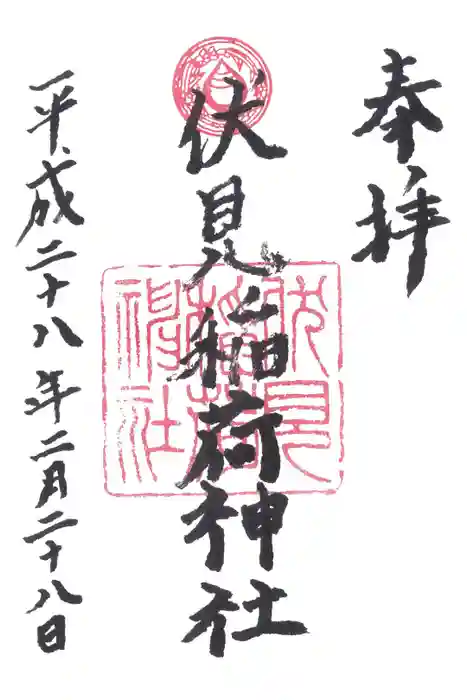 奉拝
伏見稲荷神社
伏見
稲荷
神社
平成二十八年二月二十八日